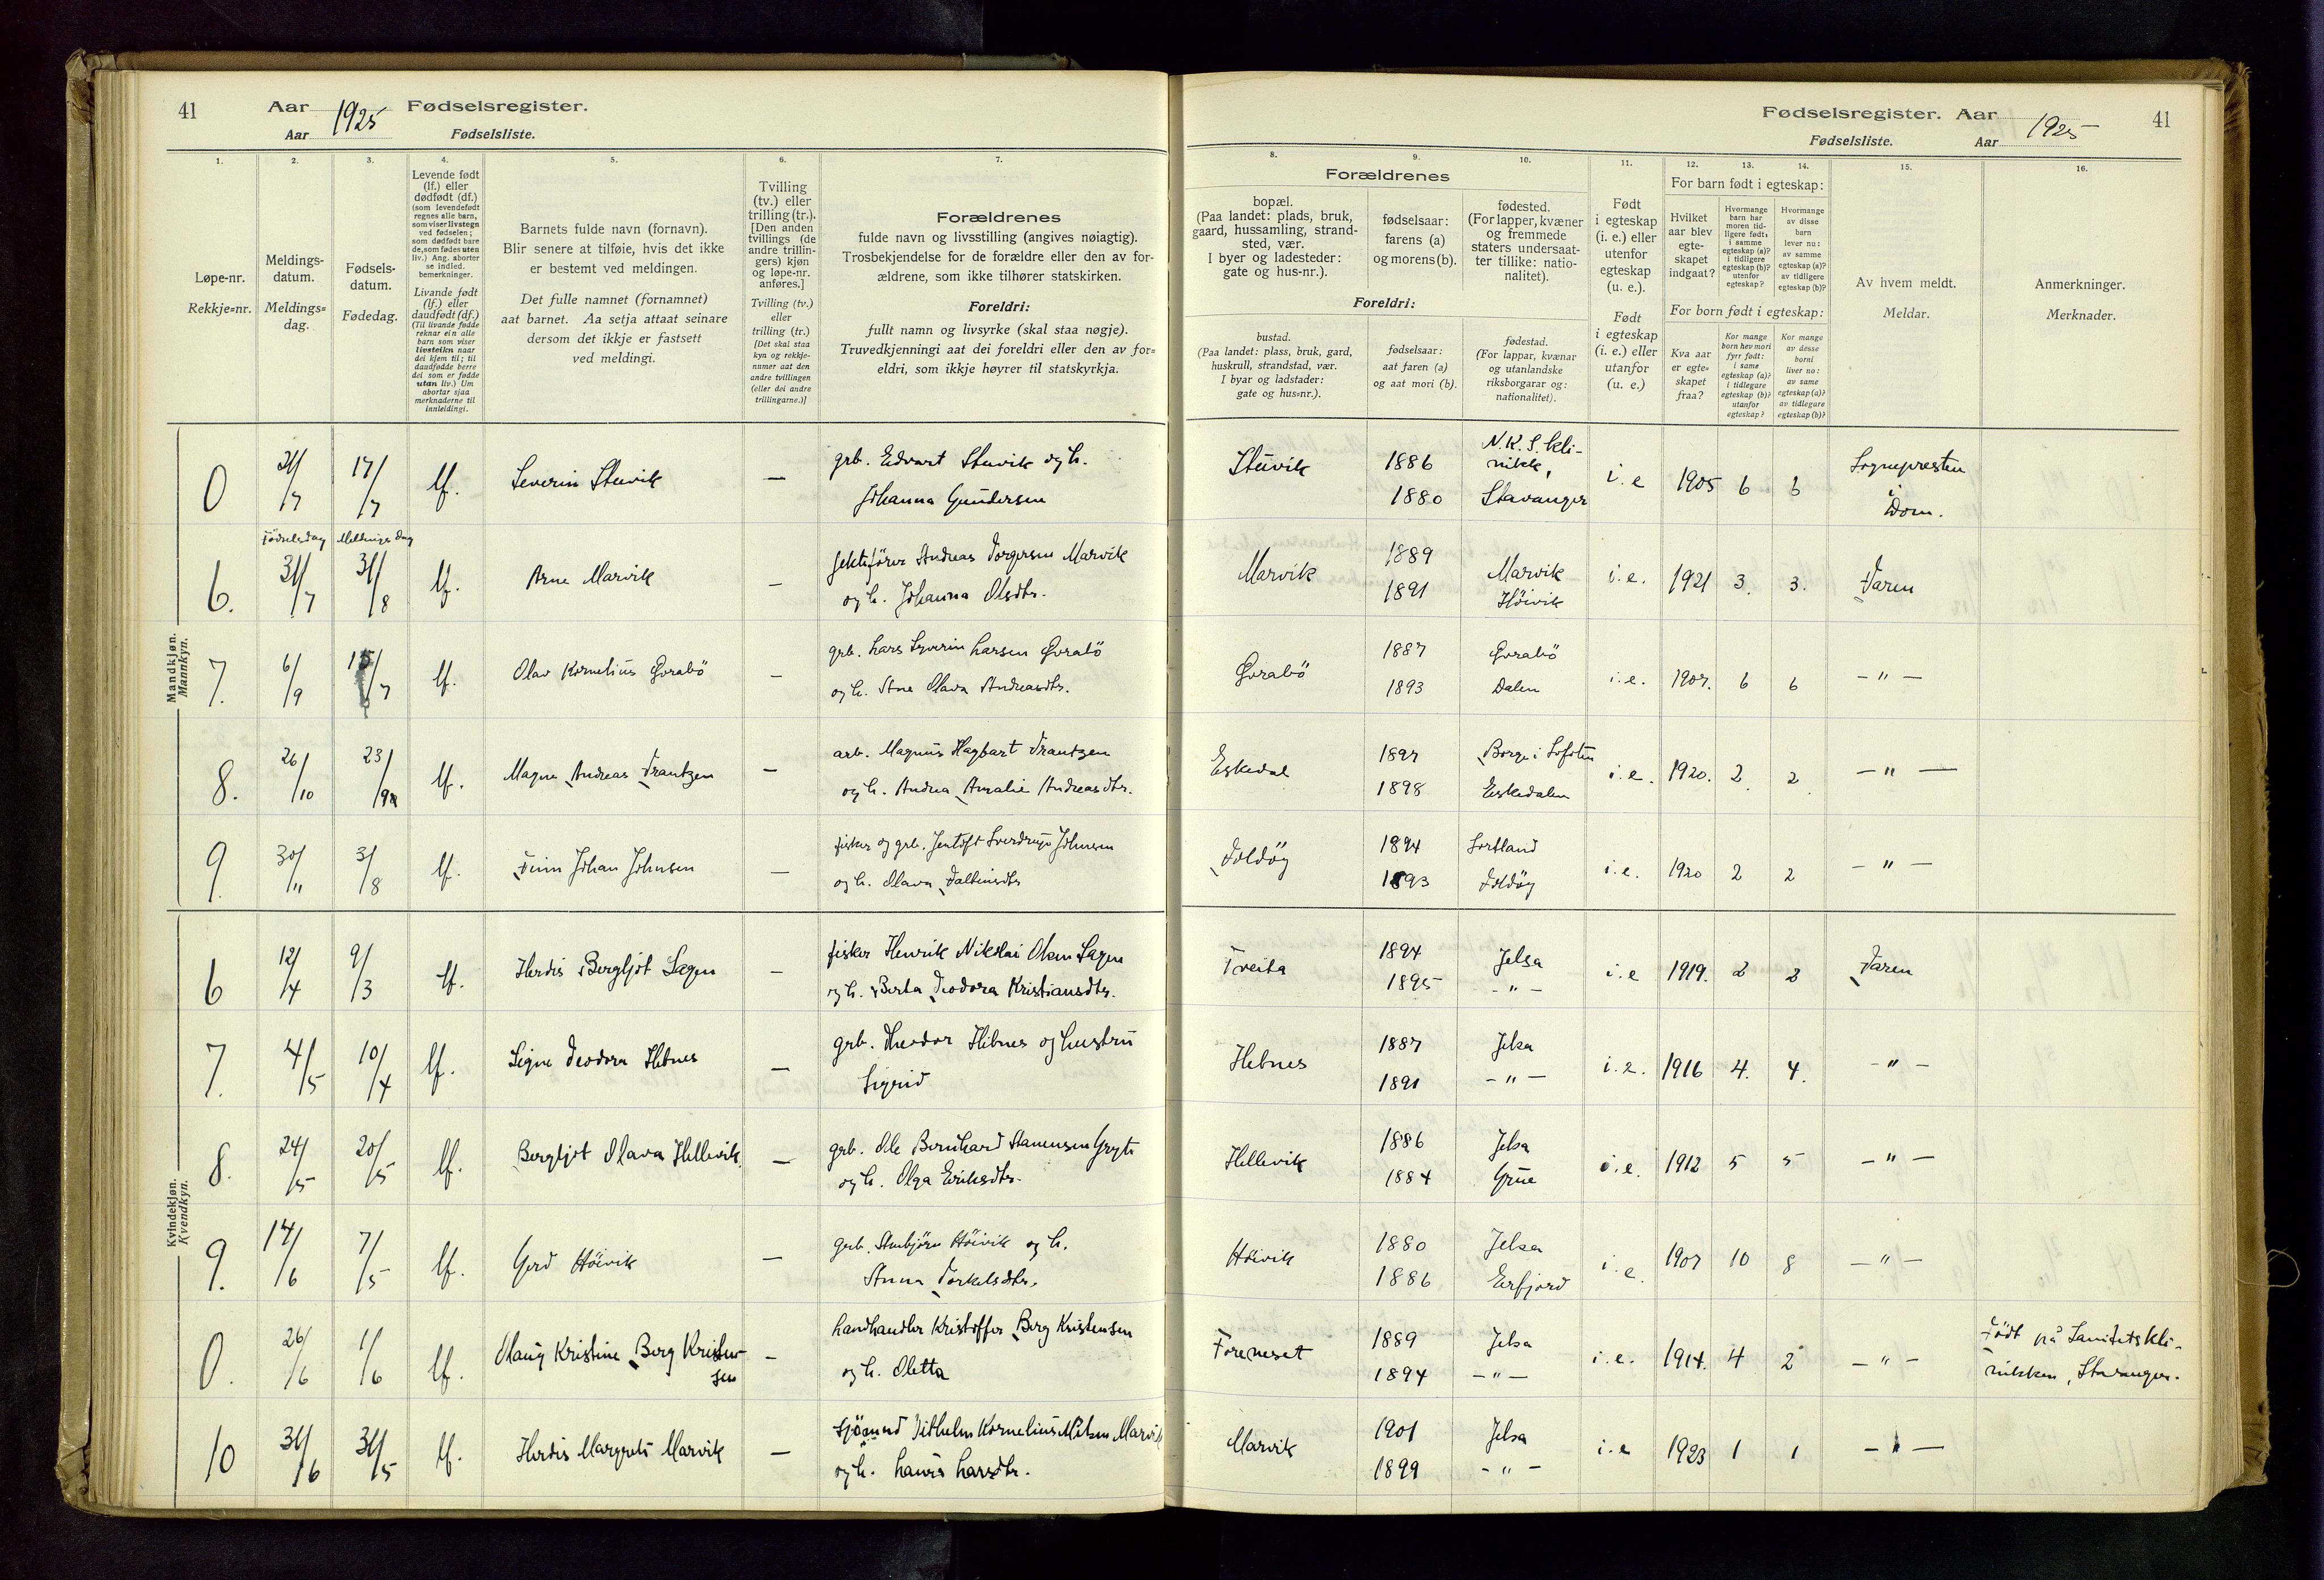 41 Aar 1925 Fødselsregister.
Aar Fødselsliste.
Fødselsregister. Aar 1925 41
Fødselsliste. Aar
1. 2. 3. 4. 5. 6. 7.
Løpe-nr.
Rekkje=nr.
Meldings-
datum.
Meldings=
dag.
Fødsels-
datum.
Fødedag.
Levende født
(lf.) eller
dødfødt (df.)
(som levendefødt
regnes alle barn,
som viser livstegn
ved fødselen;
som dødfødt bare
de, som fødes uten
liv.) Ang. aborter
se indled.
bemerkninger.
Livande født
(lf.) eller
daudfødt (df.)
(Til livande fødde
reknar ein alle
barn som viser
livsteikn naar
dei kjem til; til
daudfødde berre
dei som er fødde
utan liv.) Um
abortar sjaa
merknaderne til
innleidingi.
Barnets fulde navn (fornavn).
Blir senere at tilføie, hvis det ikke
er bestemt ved meldingen.
Det fulle namnet (fornamnet)
aat barnet. Aa setja attaat seinare
dersom det ikkje er fastsett
ved meldingi.
Tvilling
(tv.) eller
trilling (tr.).
[Den anden
tvillings (de
andre trillin-
gers) kjøn
og løpe-nr.
anføres.]
Tvilling (tv.)
eller
trilling (tr.)
[Det skal staa
kyn og rekkje-
numer aat den
andre tvillingen
(eller dei andre
trillingarne.)]
Forældrenes
fulde navn og livsstilling (angives nøiagtig).
Trosbekjendelse for de forældre eller den av for-
ældrene, som ikke tilhører statskirken.
Foreldri:
fullt namn og livsyrke (skal staa nøgje).
Truvedkjenningi aat dei foreldri eller den av for=
eldri, som ikkje høyrer til statskyrkja.
8. 9. 10. 11. 12. 13. 14. 15. 16.
Forældrenes
bopæl.
(Paa landet: plads, bruk,
gaard, hussamling, strand-
sted, vær.
I byer og ladesteder:
gate og hus-nr.).
fødselsaar:
farens (a)
og morens (b).
fødested.
(For lapper, kvæner
og fremmede
staters undersaat-
ter tillike: natio-
nalitet).
Foreldri:
bustad.
(Paa landet: plass, bruk, gard,
huskrull, strandstad, vær.
I byar og ladstader:
gate og hus=nr.).
fødselsaar:
aat faren (a)
og aat mori (b).
fødestad.
(For lappar, kvænar
og utanlandske
riksborgarar og:
nationalitet).
Født
i egteskap
(i. e.) eller
utenfor
egteskap
(u. e.).
Født
i egteskap
(i. e.) eller
utanfor
(u. e.)
For barn født i egteskap:
Hvilket
aar blev
egte-
skapet
indgaat?
Hvormange
barn har
moren tid-
ligere født:
i samme
egteskap (a)?
i tidligere
egteskap (b)?
utenfor
egteskap?
Hvormange
av disse
barn
lever nu:
av samme
egteskap (a)?
av tidligere
egteskap (b)?
For born født i egteskap:
Kva aar
er egte=
skapet
fraa?
Kor mange
born hev mori
fyrr født:
i same
egteskap (a)?
i tidlegare
egteskap (b)?
utanfor
egteskap?
Kor mange
av desse
borni
liver no:
av same
egteskap (a)?
av tidlegare
egteskap (b)?
Av hvem meldt.
Meldar.
Anmerkninger.
Merknader.
Mandkjøn.
Mannkyn.
0 21/7 17/7 lf. Severin Stuvik — grb. Edvart Stuvik og h.
Johanna Gundersen
Stuvik 1886 1880 N.K.S. kli-
nikk,
Stavanger i.e 1905 6 6 Sognepresten
i
Dom.
Fødselsdag Meldingsdag
6. 31/7 31/8 lf. Arne Marvik — jektefører Andreas Torgersen Marvik
og h. Johanna Olsdtr.
Marvik 1889 1891 Marvik
Höivik i.e. 1921 3. 3. Faren
7. 6/9 15/7 lf. Olav Kornelius Gorabö — grb. Lars Severin Larsen Gorabö
og h. Ane Olava Andreasdtr.
Gorabö 1887 1893 Gorabö
Dalen i.e. 1907. 6 6 — " —
8. 26/10 23/9 lf. Magne Andreas Frantzen — arb. Magnus Hagbart Frantzen
og h. Andrea Amalie Andreasdtr.
Eskedal 1897 1898 Borge i Lofoten
Eskedalen i.e. 1920. 2 2 — " —
9. 30/11 3/8 lf. Finn Johan Johnsen — fisker og grb. Jentoft Sverdrup Johnsen
og h. Olava Faltinsdtr
Foldöy 1894 1893 Sortland
Foldöy i.e. 1920 2 2 — " —
Kvindekjøn.
Kvendkyn.
6 12/4 9/3 lf. Herdis Bergljot Sagen — fisker Henrik Nikolai Olsen Sagen
og h. Berta Teodora Kristiansdtr.
Treita 1894 1895 Jelsa
— " — i.e 1919. 2 2 Faren
7. 4/5 10/4 lf. Signe Teodora Hebnes — grb. Theodor Hebnes og hustru
Sigrid
Hebnes 1887 1891 Jelsa
— " — i.e. 1916 4. 4. — " —
8. 24/5 20/5 lf. Bergljot Olava Hellevik — grb. Ole Bernhard
og h. Olga Eriksdtr.
Hellevik 1886 1884 Jelsa
Grue i.e. 1912 5 5 — " —
9. 14/6 7/5 lf. Gerd Höivik — grb. Ambjörn Höivik og h.
Anna Torkelsdtr.
Höivik 1880 1886 Jelsa
Erfjord i.e. 1907 10 8 — " —
0. 26/6 1/6 lf. Olaug Kristine Berg Kristen-
sen — handhandler Kristoffer Berg Kristensen
og h. Oletta
Foreneset 1889 1894 Jelsa
— " — i.e. 1914. 4 2 — " — Födt på Sanitetskli-
nikken, Stavanger.
10 31/6 31/5 lf. Herdis Margrete Marvik — sjömand Vilhelm Kornelius Marvik
og h. Larsdtr.
Marvik 1901 1899 Jelsa
— " — i.e 1923 1 1 — " —